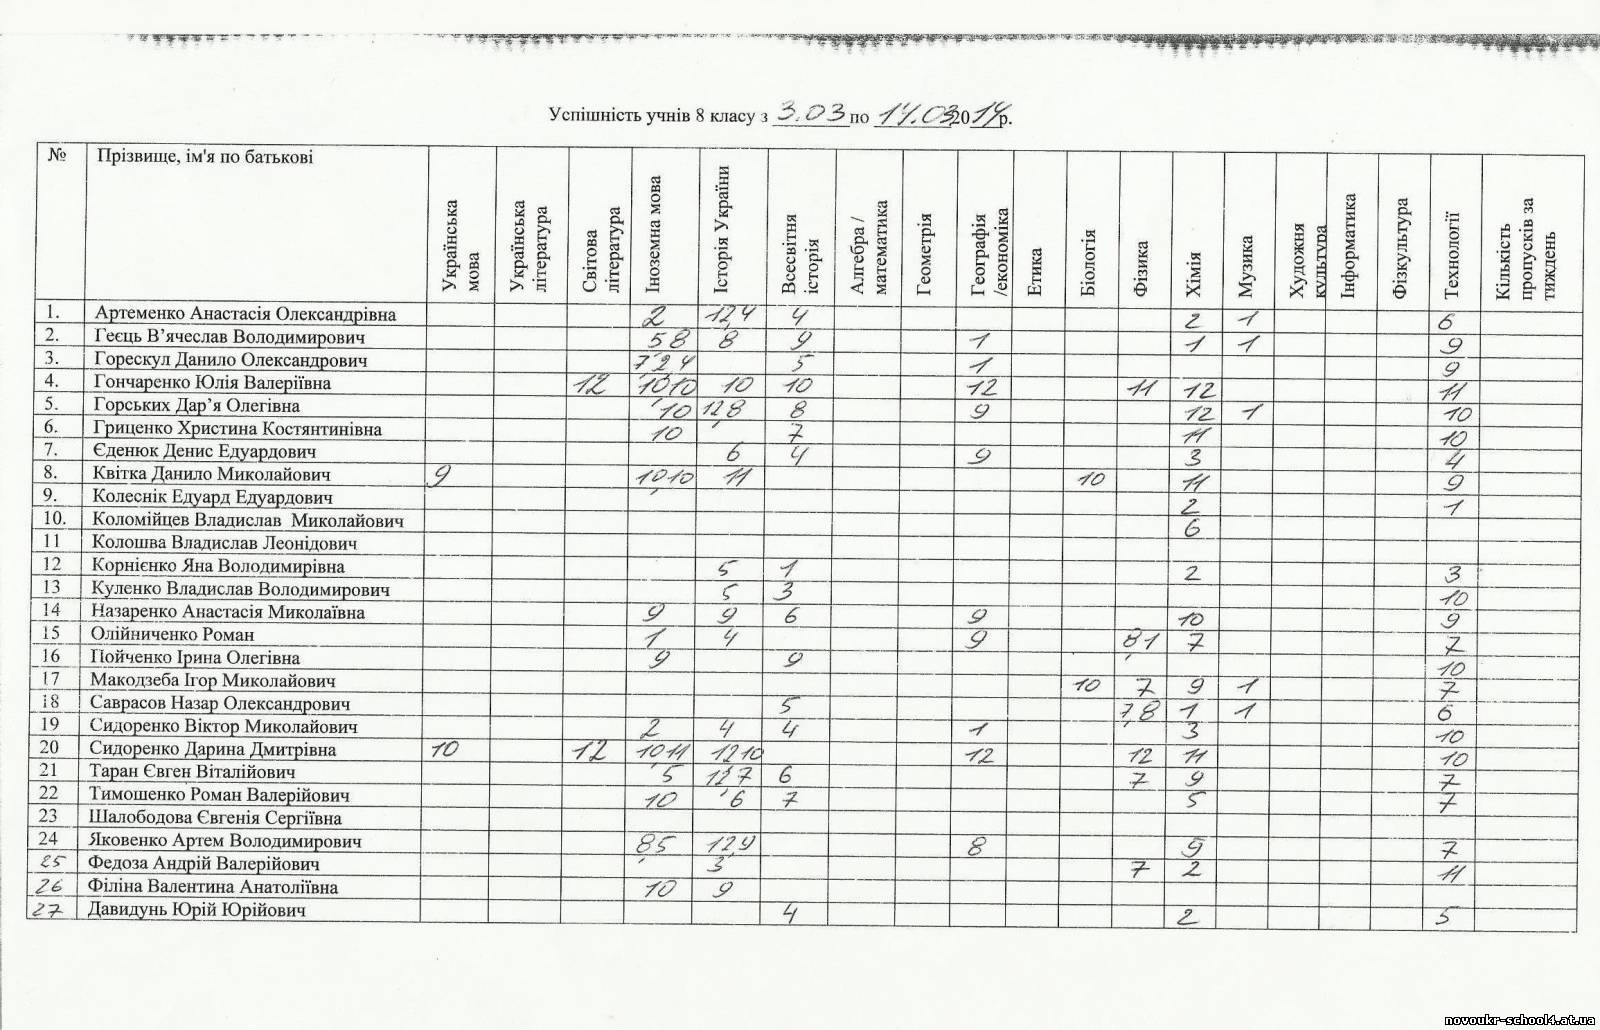 Успішність учнів 8 класу з 3.03 по 14.03 2014р.
№ Прізвище, ім'я по батькові Українська мова Українська література Світова література Іноземна мова Історія України Всесвітня історія Алгебра / математика Геометрія Географія /економіка Етика Біологія Фізика Хімія Музика Художня культура Інформатика Фізкультура Технології Кількість пропусків за тиждень
1. Артеменко Анастасія Олександрівна 2 12,4 4 2 1 6
2. Геєць В’ячеслав Володимирович 5 8 8 9 1 1 1 9
3. Горескул Данило Олександрович 7,2,4 5 1 9
4. Гончаренко Юлія Валеріївна 12 10,10 10 10 12 11 12 11
5. Горських Дар’я Олегівна 10 12,8 8 9 12 1 10
6. Гриценко Христина Костянтинівна 10 7 11 10
7. Єденюк Денис Едуардович 6 4 9 3 4
8. Квітка Данило Миколайович 9 10,10 11 10 11 9
9. Колеснік Едуард Едуардович 2 1
10. Коломійцев Владислав Миколайович 6
11 Колошва Владислав Леонідович
12 Корнієнко Яна Володимирівна 5 1 2 3
13 Куленко Владислав Володимирович 5 3 10
14 Назаренко Анастасія Миколаївна 9 9 6 9 10 9
15 Олійниченко Роман 1 4 9 8,1 7 7
16 Пойченко Ірина Олегівна 9 9 10
17 Макодзеба Ігор Миколайович 10 7 9 1 7
18 Саврасов Назар Олександрович 5 7,8 1 1 6
19 Сидоренко Віктор Миколайович 2 4 4 1 3 10
20 Сидоренко Дарина Дмитрівна 10 12 10,11 12,10 12 12 11 10
21 Таран Євген Віталійович 5 12,7 6 7 9 7
22 Тимошенко Роман Валерійович 10 6 7 5 7
23 Шалободова Євгенія Сергіївна
24 Яковенко Артем Володимирович 8,5 12,9 8 9 7
25 Федоза Андрій Валерійович 3 7 2 11
26 Філіна Валентина Анатоліївна 10 9
27 Давидунь Юрій Юрійович 4 2 5
novoukr-school4.at.ua